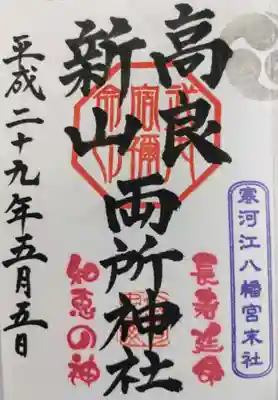 寒河江八幡宮末社
高良
新山
両所神社
長寿延命
知恵の神
平成二十九年五月五日